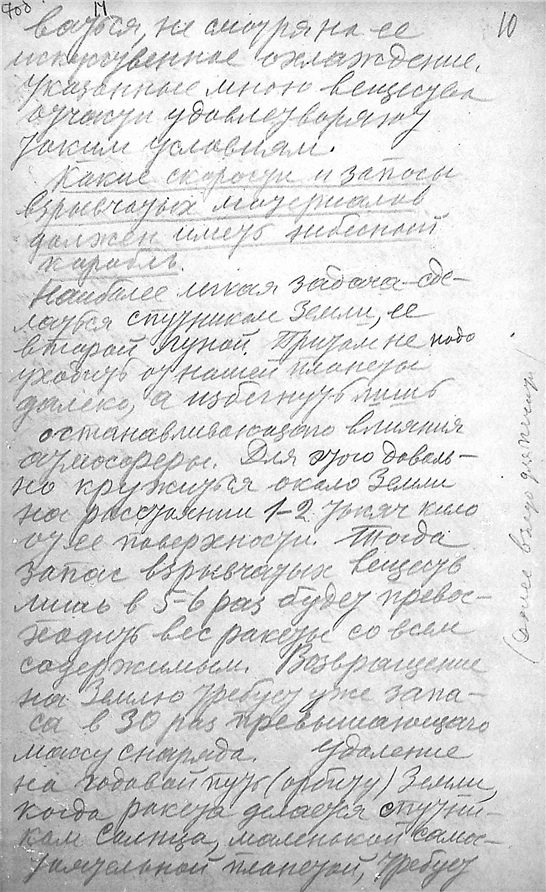 10
ваться, не смотря на ее
искусственное охлаждение.
Указанные мною вещества
отчасти удовлетворяют
таким условиям.
Какие скорости и запасы
взрывчатых материалов
должен иметь небесный
карабль.
Наиболее легкая задача – сде-
латься спутником Земли, ее
второй Луной. Притом не надо
уходить от нашей планеты
далеко, а избегнуть лишь
останавливающего влияния
атмосферы. Для этого доволь-
но кружиться около Земли
на расстоянии 1–2 тысяч кило
от ее поверхности. Тогда
запас взрывчатых веществ
лишь в 5–6 раз будет превос-
ходить вес ракеты со всем
содержимым. Возвращение
на Землю требует уже запа-
са в 30 раз превышающего
массу снаряда. Удаление
на годовой путь (орбиту) Земли,
когда ракета делается спутни-
ком Солнца, маленькой самос-
тоятельной планетой, требует